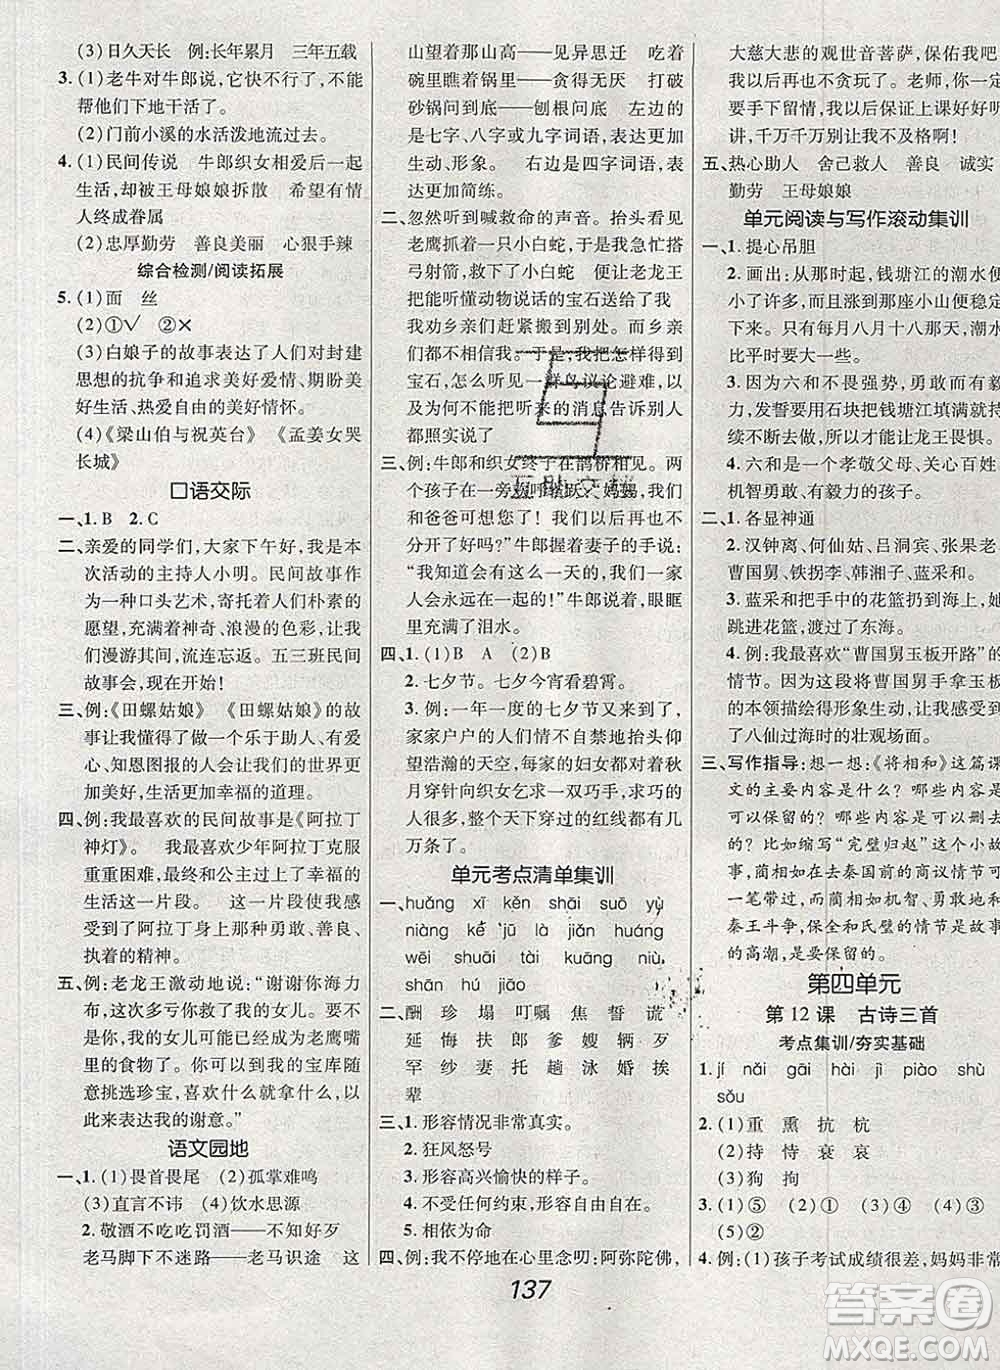 (3)日久天长 例:长年累月 三年五载
3.(1)老牛对牛郎说,它快不行了,不能
帮他们下地干活了。
(2)门前小溪的水活泼地流过去。
4.(1)民间传说 牛郎织女相爱后一起
生活,却被王母娘娘拆散 希望有情
人终成眷属
(2)忠厚勤劳 善良美丽 心狠手辣
综合检测/阅读拓展
5.(1)面 丝
(2)①√ ②×
(3)白娘子的故事表达了人们对封建
思想的抗争和追求美好爱情、期盼美
好生活、热爱自由的美好情怀。
(4)《梁山伯与祝英台》 《孟姜女哭
长城》
口语交际
一、1.B 2.C
二、亲爱的同学们,大家下午好,我是本
次活动的主持人小明。民间故事作
为一种口头艺术,寄托着人们朴素的
愿望,充满着神奇、浪漫的色彩,让我
们漫游其间,流连忘返。五三班民间
故事会,现在开始!
三、例:《田螺姑娘》 《田螺姑娘》的故
事让我懂得了乐于助人、有爱
心、知恩图报的人会让我们的世界更
温暖,生活更加幸福的道理。
四、例:我最喜欢的民间故事是《阿拉丁
神灯》。 我最喜欢少年阿拉丁克服
重重困难,最终和公主过上幸福的
生活这一片段。 这个片段让我感
受到了阿拉丁身上那种的勇敢、善良、
执着的精神。
五、例:老龙王激动地说:“谢谢你海力
布,多亏你救了我的女儿。要不是你
救她,我的女儿可能已经是老鹰嘴
里的食物了。你跟我到我的宝库里
挑选珍宝,喜欢什么就拿什么,以
此来表达我的谢意。”
语文园地
一、1.(1)畏首畏尾 (2)孤掌难鸣
(3)直言不讳 (4)饮水思源
2.敬酒不吃吃罚酒——不知好歹
老马脚下不迷路——老马识途 这
山望着那山高——见异思迁 吃着
碗里瞧着锅里——贪得无厌 打破
砂锅问到底——刨根问底 左边的
七字、八字或九字词语,表达更加
生动、形象。 右边是四字词语,表
达更加简练。
二、忽然听到喊救命的声音。抬头看见
老鹰抓着一条小白蛇 他急忙搭
弓射箭,救下小白蛇 回到家老龙王
把能听懂动物说话的宝石送给了我
我劝乡亲们赶紧搬到别处。可乡亲
们不相信。于是,我把怎样得到
宝石,怎么听见一群鸟议论避难,以
及为何不能把听来的消息告诉别人
都照实说了
三、例:牛郎和织女终于在鹊桥相见。两
个孩子在一旁欢呼雀跃:“妈妈,
和爸爸可想您了!我们以后再也不
分开了好吗?”牛郎握着妻子的手说:
“我知道会有这么一天的,我们一家
人会永远在一起的!”牛郎说着,眼眶
里充满了泪水。
四、1.(1)B A (2)B
2.七夕节。七夕今宵看碧霄。
3.例:一年一度的七夕节又来到了,
家家户户的人们情不自禁地抬头仰
望浩瀚的天空,每家的妇女都在秋
月穿针向织女乞求一双巧手,
多少年来,整个天下穿过的红线都有
几万条了。
单元考点清单集训
一、huǎng xī kěn shāi suō yù
niàng kē jū là jiǎn huáng
wēi shuāi tài kuāng niàn
shān hú jiāo
二、酬 珍 塌 叮嘱 焦 誓 谎
延 悔 扶 郎 爹 嫂 辆 歹
罕 纱 妻 托 趟 泳 婚 挨
辈
三、1.形容情况非常真实。
2.狂风怒号
3.形容高兴愉快的样子。
4.不受任何约束,形容自由自在。
5.相依为命
四、例:我不停地在心里念叨:阿弥陀佛,
大慈大悲的观世音菩萨,保佑我吧,
我以后再也不贪玩了。老师,你一定
要手下留情,我以后保证上课好好听
讲,千万千万别让我不及格啊!
五、热心助人 舍己救人 善良 诚实
勤劳 王母娘娘
单元阅读与写作滚动集训
一、1.提心吊胆
2.画出:从那时起,钱塘江的潮水便
只有每月八月十八那天,潮水
要比平时大一些。
3.因为六和不畏强势,勇敢而有毅
力,发誓要用石块把钱塘江填满,
续不断地投石,让龙王畏惧。
4.六和是一个孝敬父母、关心百姓、
机智勇敢、有毅力的孩子。
二、1.各显神通
2.汉钟离、何仙姑、吕洞宾、张果老
曹国舅、铁拐李、韩湘子、蓝采和。
3.蓝采和把手中的花篮扔到海上,她
跳进花篮,渡过了东海。
4.例:我最喜欢“曹国舅玉板开路”的
情节。这里把曹国舅手拿玉板
的本领描绘得形象生动,让人感受到
了八仙过海时的壮观场面。
三、写作指导:想一想:《将相和》这篇课
文的主要内容是什么?哪些内容是
可以保留的?哪些内容是可以删去
的?比如缩写“完璧归赵”这个小故
事,蔺相如在秦国前的商议情节可
一笔带过,而蔺相如有勇有谋,与
秦王斗争,保全和氏璧的情节是故事
的高潮,是要保留的。
第四单元
第12课 古诗三首
考点集训/夯实基础
1.jí nǎi gāi hài jì piào shù
sǒu
2.(1)重 熏 抗 杭
(2)持 恃 衰 哀
(3)狗 拘
3.(1)⑤ (2)① (3)④ (4)③
(5)②
4.例:(1)孩子考试成绩很差,妈妈非常
137
答案圈
MXQE.COM